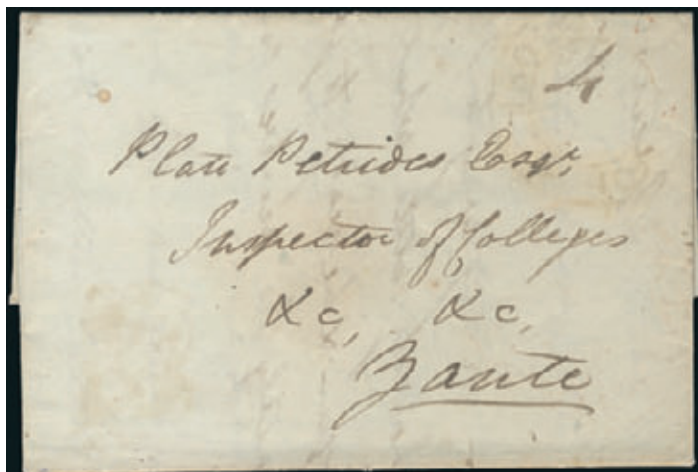 4
Plato Petrides Esqr.
Inspector of Colleges
&c, &c,
Zante